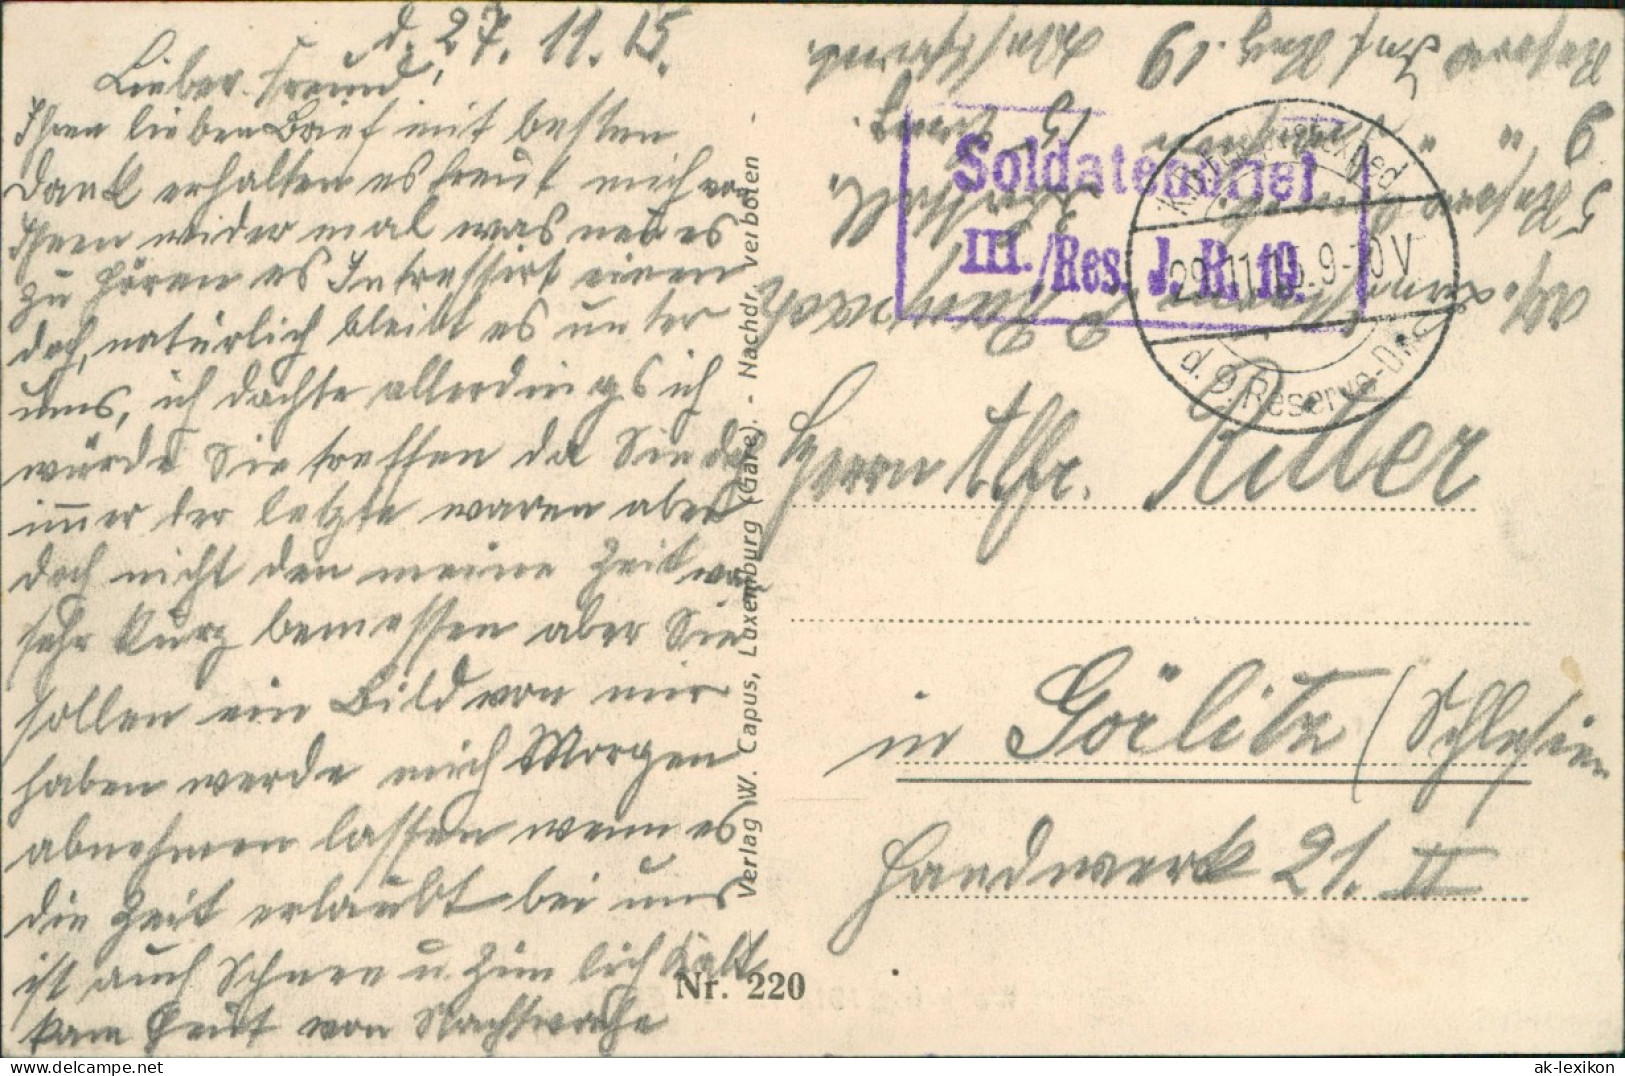 d. 27. 11. 15.
Lieber Freund!
Ihren lieben Brief mit besten
Dank erhalten es freut mich von
Ihnen wider mal was neues
zu hören es Intressirt einen
doch, natürlich bleibt es unter
uns, ich dachte allerdings ich
würde Sie treffen da Sie doch
immer der letzte waren aber
doch nicht den meine Zeit war
sehr kurz bemessen aber Sie
sollen ein Bild von mir
haben werde mich Morgen
abnehmen lassen wenn es
die Zeit erlaubt bei uns
ist auch Schnee u. Zimlich Kalt
kam heut von Nachtwache
Verlag W. Capus, Luxemburg (Gare). - Nachdr. verboten
Nr. 220
Soldatenbrief
III./Res. J. R. 19.
29.11.15. 9-10 V
d. 9. Reserve-Div.
Abs.
2 Komp.
5 Reserve
9 " "
Reserve Inf. Rég. 19
Herrn Alfr. Ritter
in Görlitz (Schlesien
Handwerk 21. II
ak-lexikon